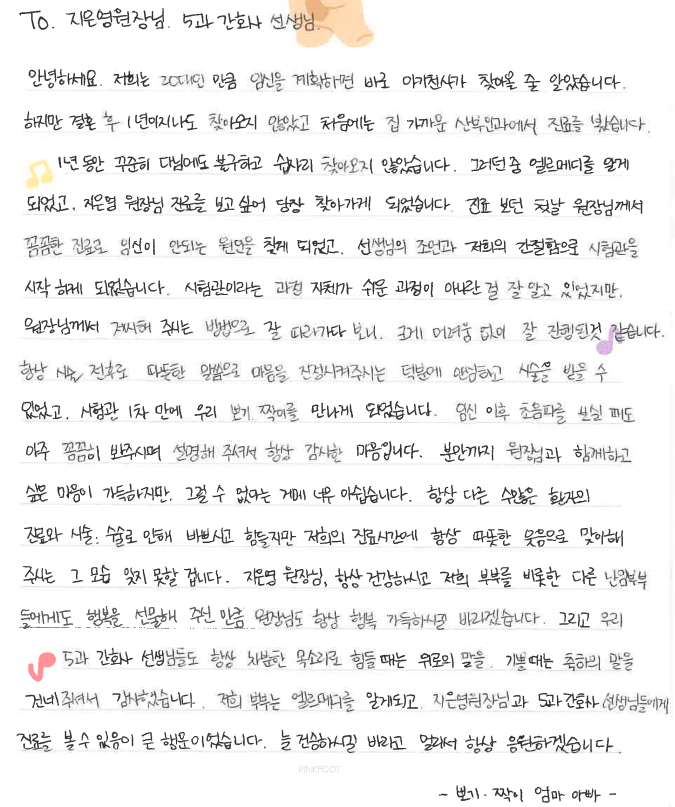 To. 지은영원장님. 5과 간호사 선생님.
안녕하세요. 저희는 20대인 만큼 임신을 계획하면 바로 아기천사가 찾아올 줄 알았습니다.
하지만 결혼 후 1년이지나도 찾아오지 않았고 처음에는 집 가까운 산부인과에서 진료를 봤습니다.
1년 동안 꾸준히 다님에도 불구하고 쉽사리 찾아오지 않았습니다. 그러던 중 엘르메디를 알게
되었고, 지은영 원장님 진료를 보고 싶어 당장 찾아가게 되었습니다. 진료 보던 첫날 원장님께서
꼼꼼한 진료로 임신이 안되는 원인을 찾게 되었고, 선생님의 조언과 저희의 간절함으로 시험관을
시작 하게 되었습니다. 시험관이라는 과정 자체가 쉬운 과정이 아니란 걸 잘 알고 있었지만,
원장님께서 제시해 주시는 방법으로 잘 따라가다 보니, 크게 어려움 없이 잘 진행된것 같습니다.
항상 시술 전후로 따뜻한 말씀으로 마음을 진정시켜주시는 덕분에 안심하고 시술을 받을 수
있었고, 시험관 1차 만에 우리 뽀기. 짝이를 만나게 되었습니다. 임신 이후 초음파를 보실 때도
아주 꼼꼼히 봐주시며 설명해 주셔서 항상 감사한 마음입니다. 분만까지 원장님과 함께하고
싶은 마음이 가득하지만, 그럴 수 없다는 게에 너무 아쉽습니다. 항상 다른 수많은 환자의
진료와 시술. 수술로 인해 바쁘시고 힘들지만 저희의 진료시간에 항상 따뜻한 웃음으로 맞이해
주시는 그 모습 잊지 못할 겁니다. 지은영 원장님, 항상 건강하시고 저희 부부를 비롯한 다른 난임부부
들에게도 행복을 선물해 주신 만큼 원장님도 항상 행복 가득하시길 바라겠습니다. 그리고 우리
5과 간호사 선생님들도 항상 차분한 목소리로 힘들 때는 위로의 말을. 기쁠때는 축하의 말을
건네주셔서 감사했습니다. 저희 부부는 엘르메디를 알게되고, 지은영원장님과 5과간호사 선생님들에게
진료를 볼 수 있음이 큰 행운이었습니다. 늘 건승하시길 바라고 멀리서 항상 응원하겠습니다.
PINKFOOT
~ 뽀기. 짝이 엄마 아빠 -